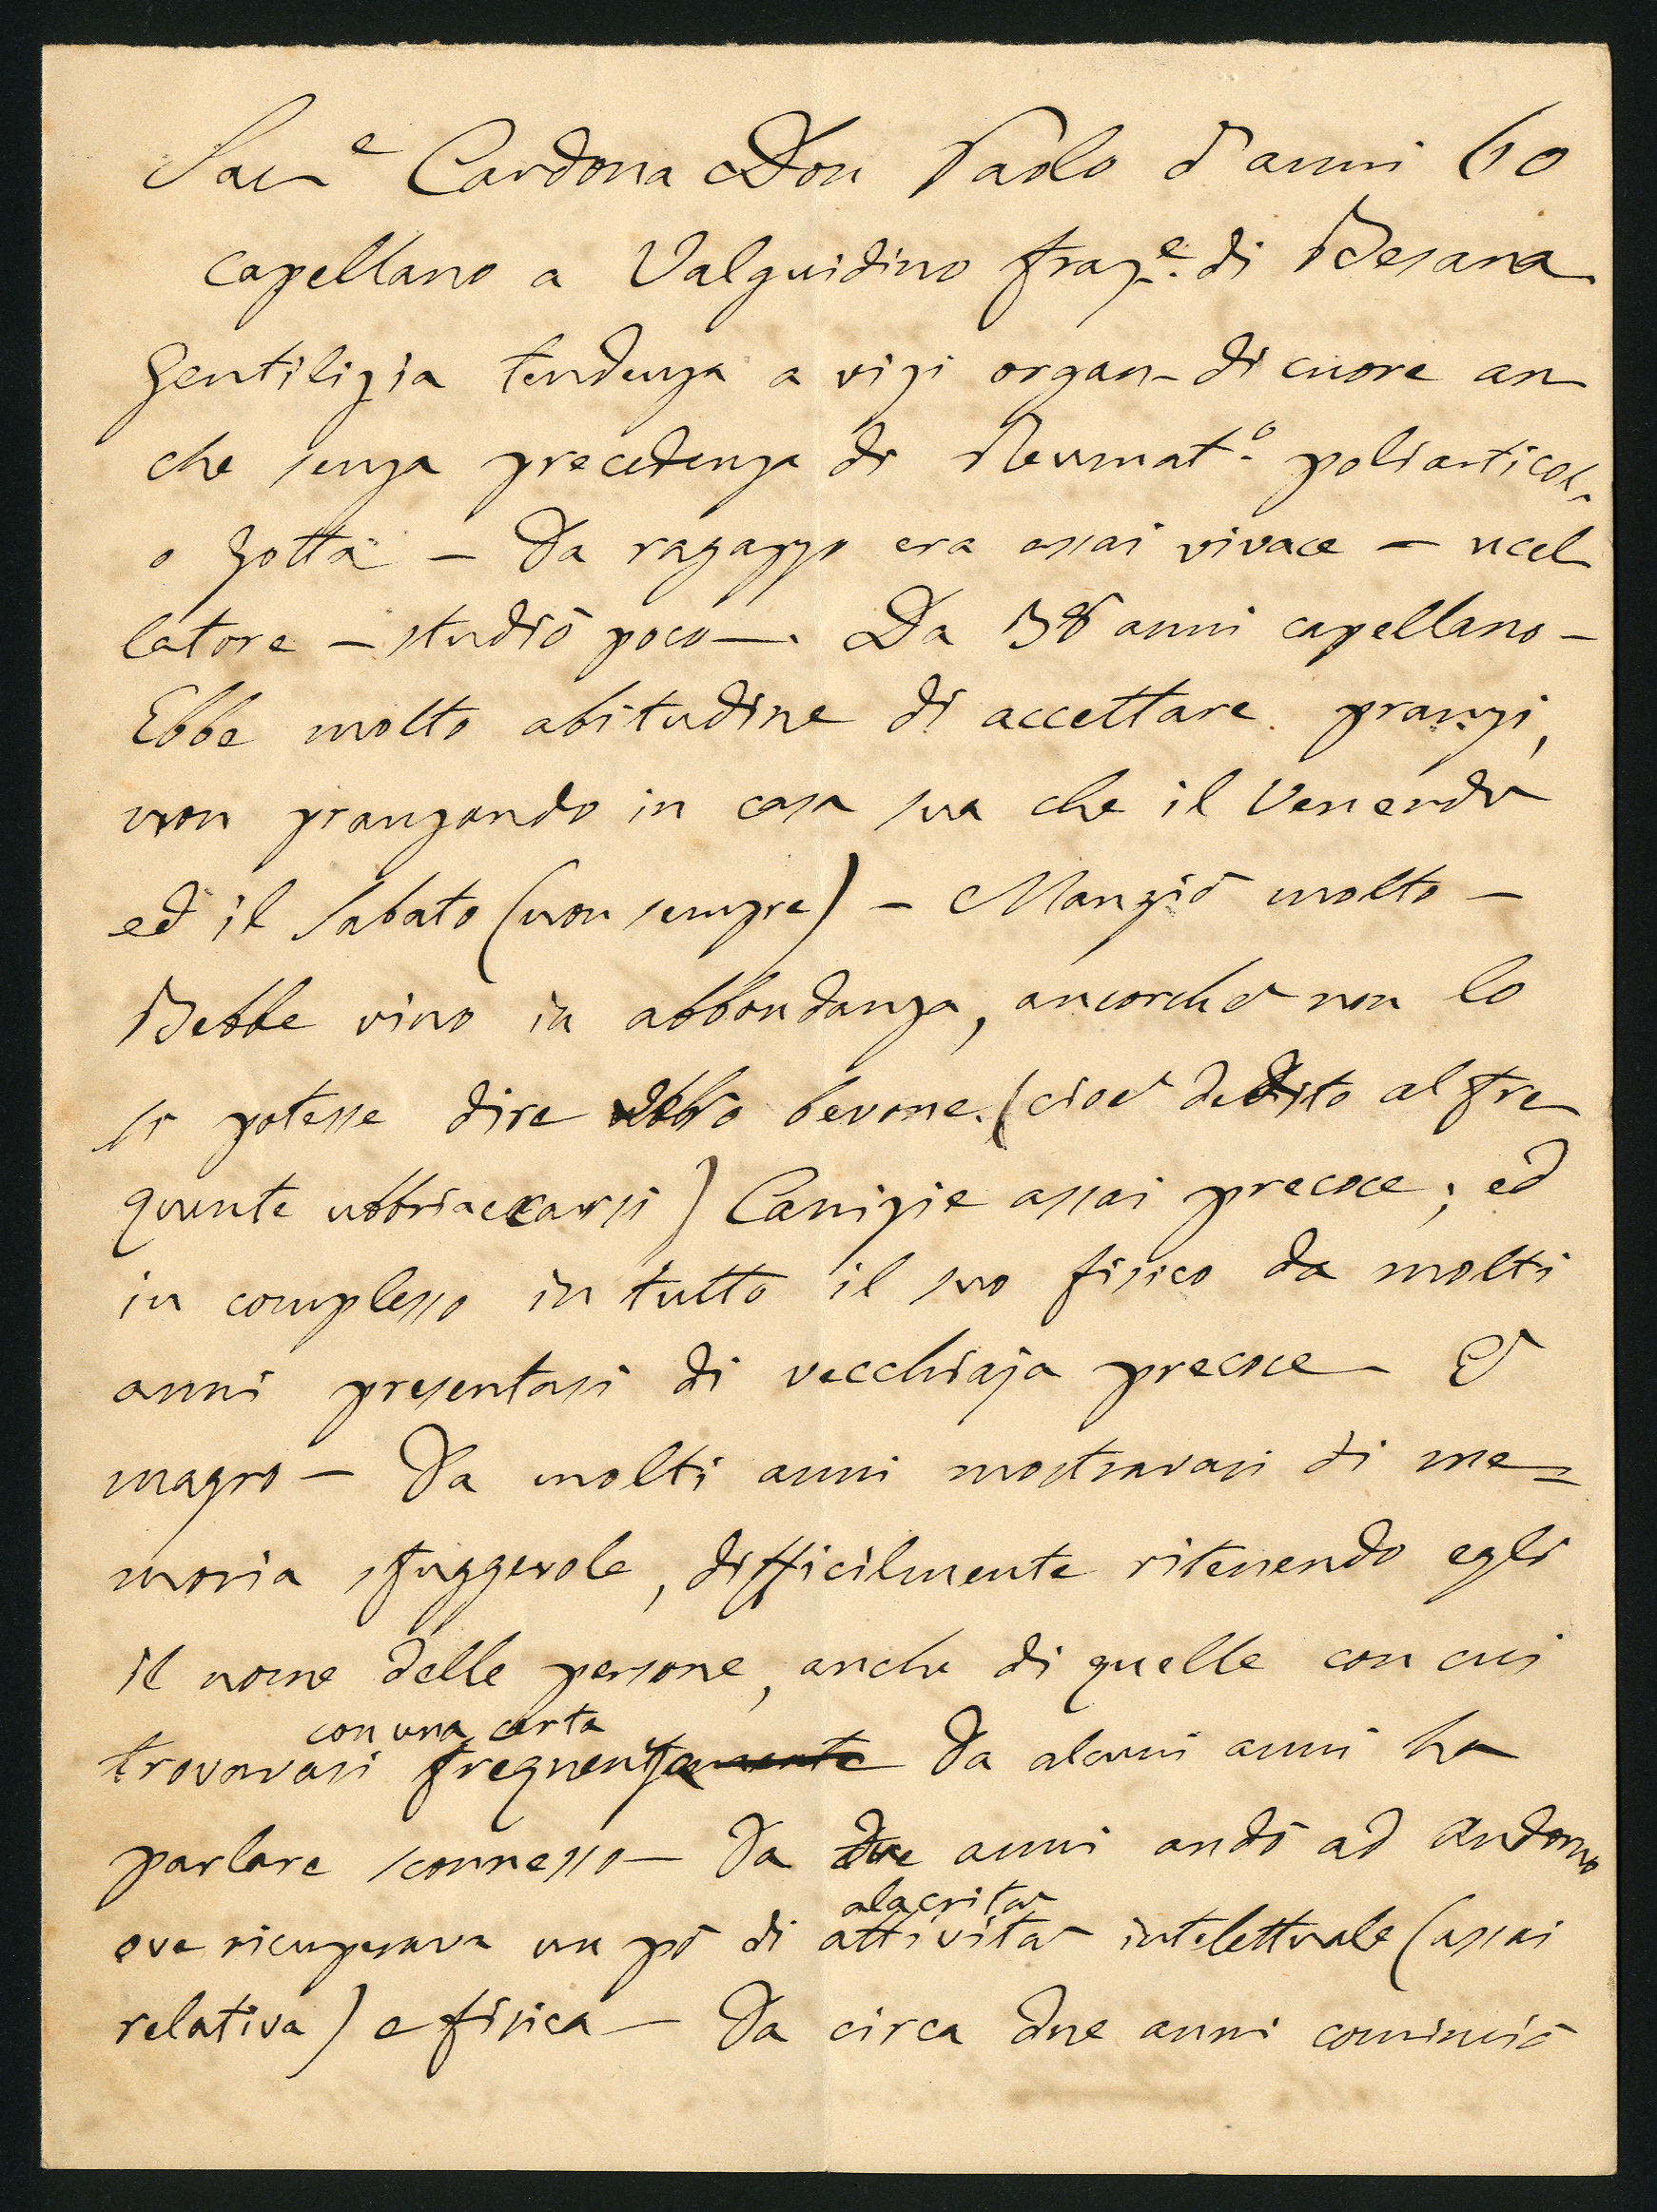 Sac.e Cardona Don Paolo d'anni 60
capellano a Valguidino fraz.e di Besana
Gentilizia tendenza a vizi organ. di cuore an
che senza precedenza di Reumat.o poliarticol.
o Gotta — Da ragazzo era assai vivace — ucel
latore — studiò poco —. Da 38 anni capellano —
Ebbe molto abitudine di accettare pranzi,
non pranzando in casa sua che il Venerdì
ed il Sabato (non sempre) — Mangiò molto —
Bebbe vino in abbondanza, ancorchè non lo
si potesse dire bevone. (cioè dedito al fre
quente ubbriaccarsi) Canizie assai precoce; ed
in complesso in tutto il suo fisico da molti
anni presentasi di vecchiaja precoce — È
magro — Da molti anni mostravasi di me=
moria sfuggevole, difficilmente ritenendo egli
il nome delle persone, anche di quelle con cui
con una certa
trovavasi frequenza Da alcuni anni ha
parlare sconnesso — Da due anni andò ad Andorno
alacrità
ove ricuperava un pò di attività intelettuale (assai
relativa) e fisica — Da circa due anni cominciò